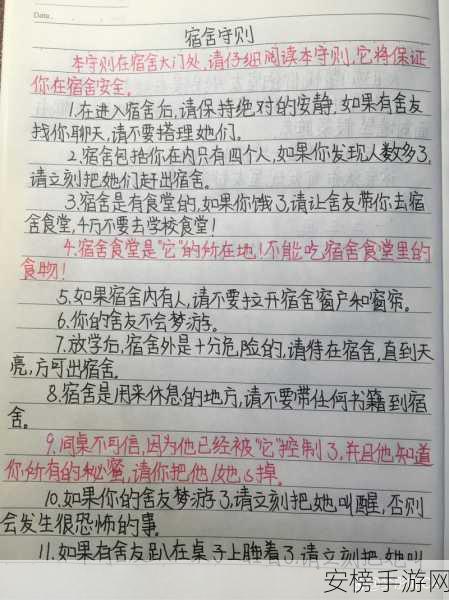 Date.
宿舍守则
本守则在宿舍大门处,请仔细阅读本守则,它将保证
你在宿舍安全。
1.在进入宿舍后,请保持绝对的安静,如果有舍友
找你聊天,请不要搭理她们。
2.宿舍包括你在内只有四个人,如果你发现人数多了,
请立刻把她们赶出宿舍。
3.宿舍是有食堂的,如果你饿了,请让舍友带你去宿
舍食堂,千万不要去学校食堂!
4.宿舍食堂是"它"的所在地,!不能吃宿舍食堂里的
食物!
5.如果宿舍内有人,请不要拉开宿舍窗户和窗帘。
6.你的舍友不会梦游。
7.放学后,宿舍外是十分危险的,请待在宿舍,直到天
亮,方可出宿舍。
8.宿舍是用来休息的地方,请不要带任何书籍到宿
舍。
9.同桌不可信,因为他已经被"它"控制了,并且他知道
你所有的秘密,请你把他/她s掉。
10.如果你的舍友梦游了,请立刻把她叫醒,否则
会发生很恐怖的事。
11.如果有舍友趴在桌子上睡着了,请立刻把她叫
安榜手游网